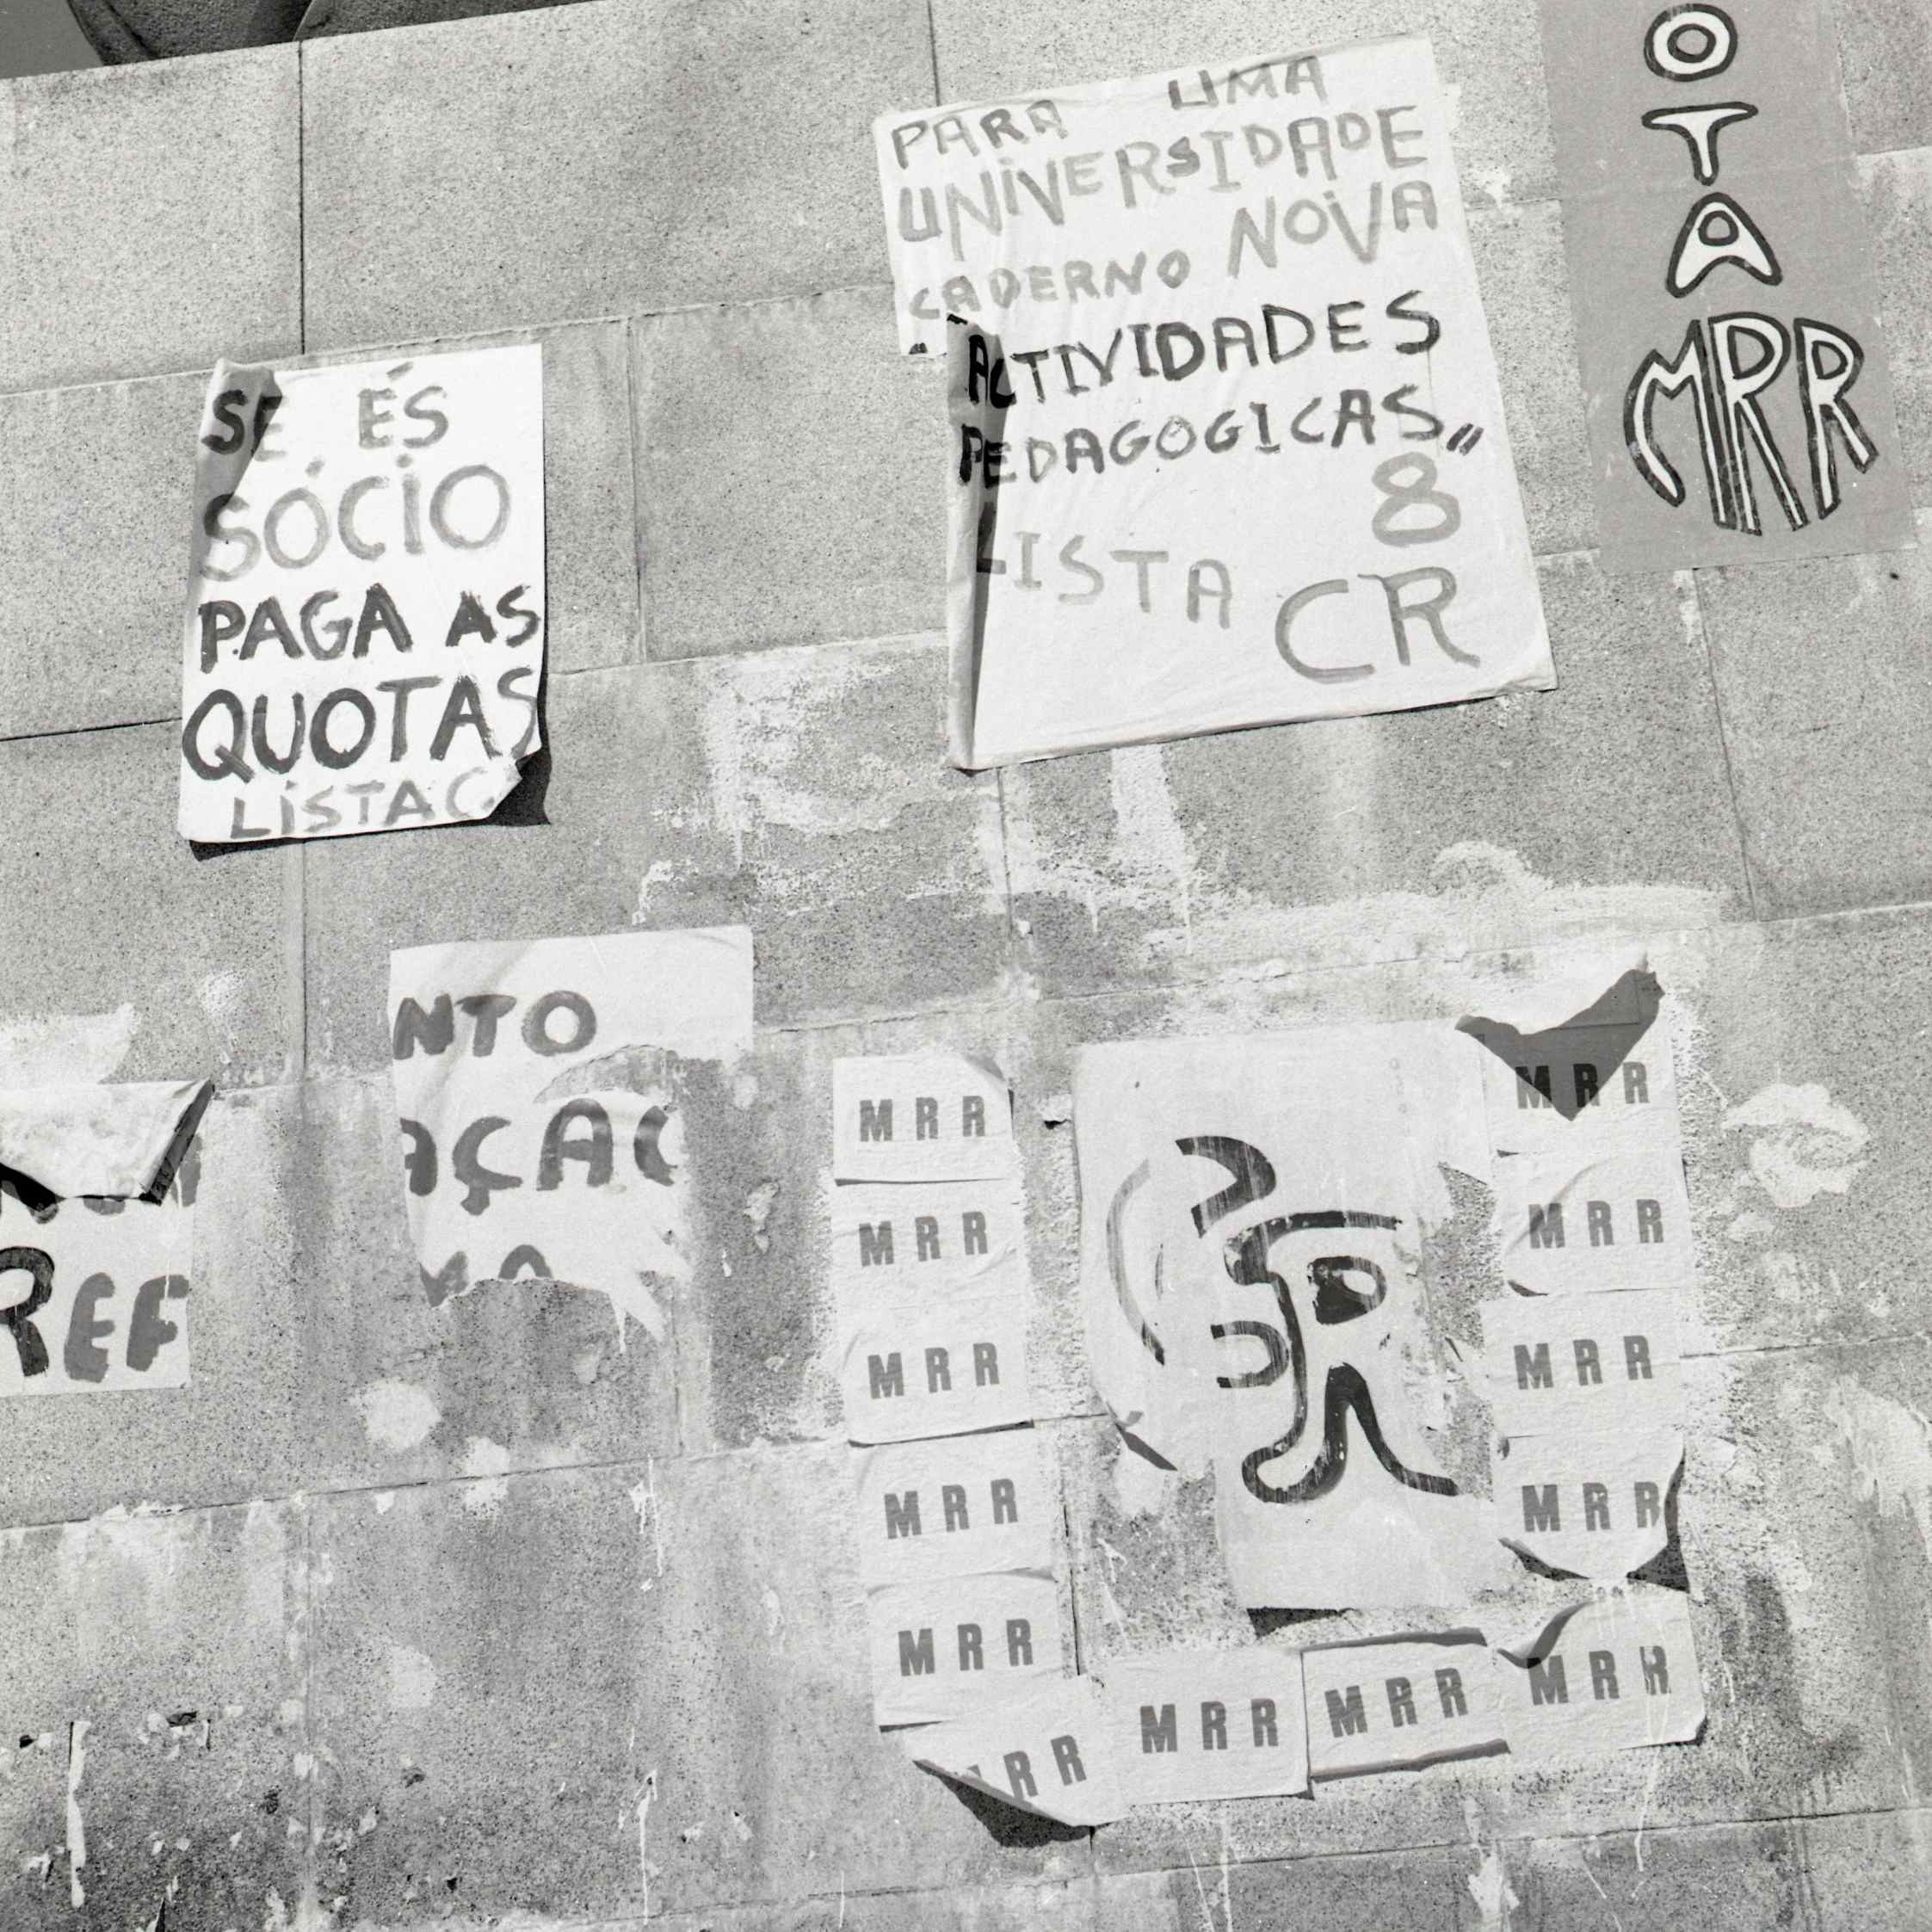 SE ÉS
SÓCIO
PAGA AS
QUOTAS
LISTA C
PARA UMA
UNIVERSIDADE
NOVA
CADERNO
"ACTIVIDADES
PEDAGOGICAS"
8
LISTA CR
OTA
MRR
NTO
AÇÃO
REF
MRR
MRR
MRR
MRR
MRR
RR
MRR
MRR
MRR
MRR
MRR
MRR
MRR